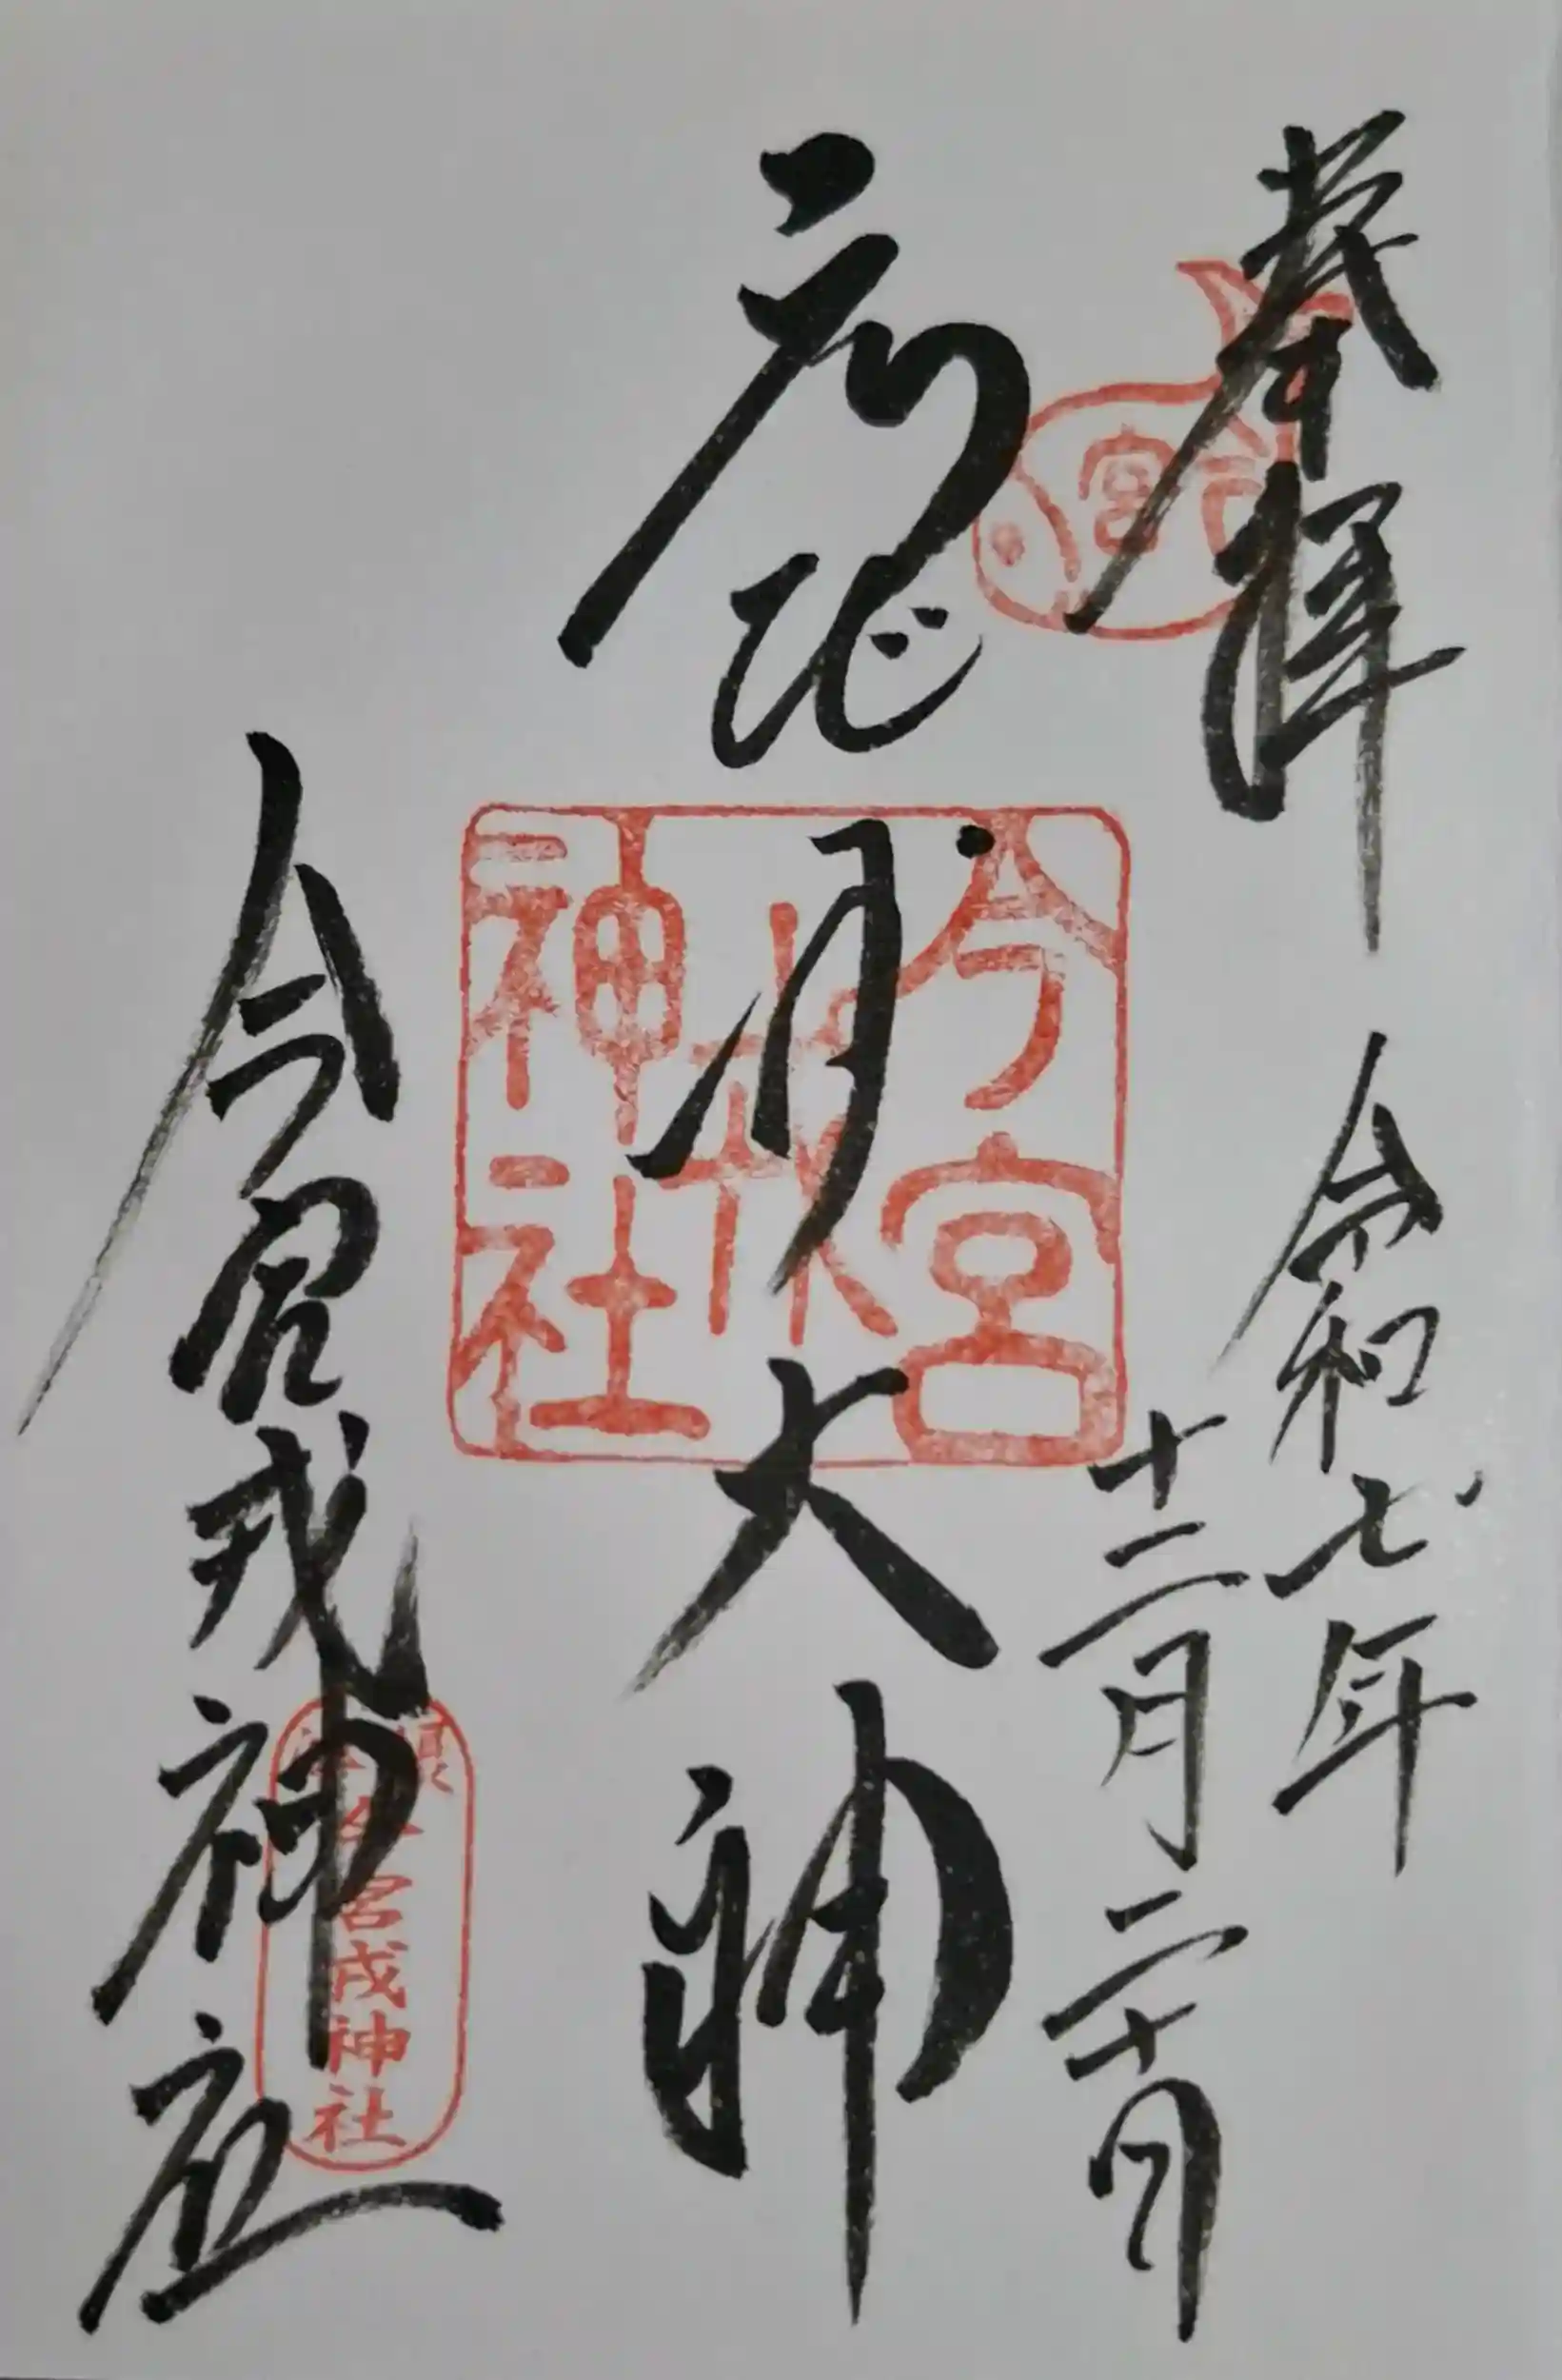 奉拝
令和七年
十二月二十日
えびす大神
今宮戎神社
今宮
戎
神社
宮
今宮戎神社